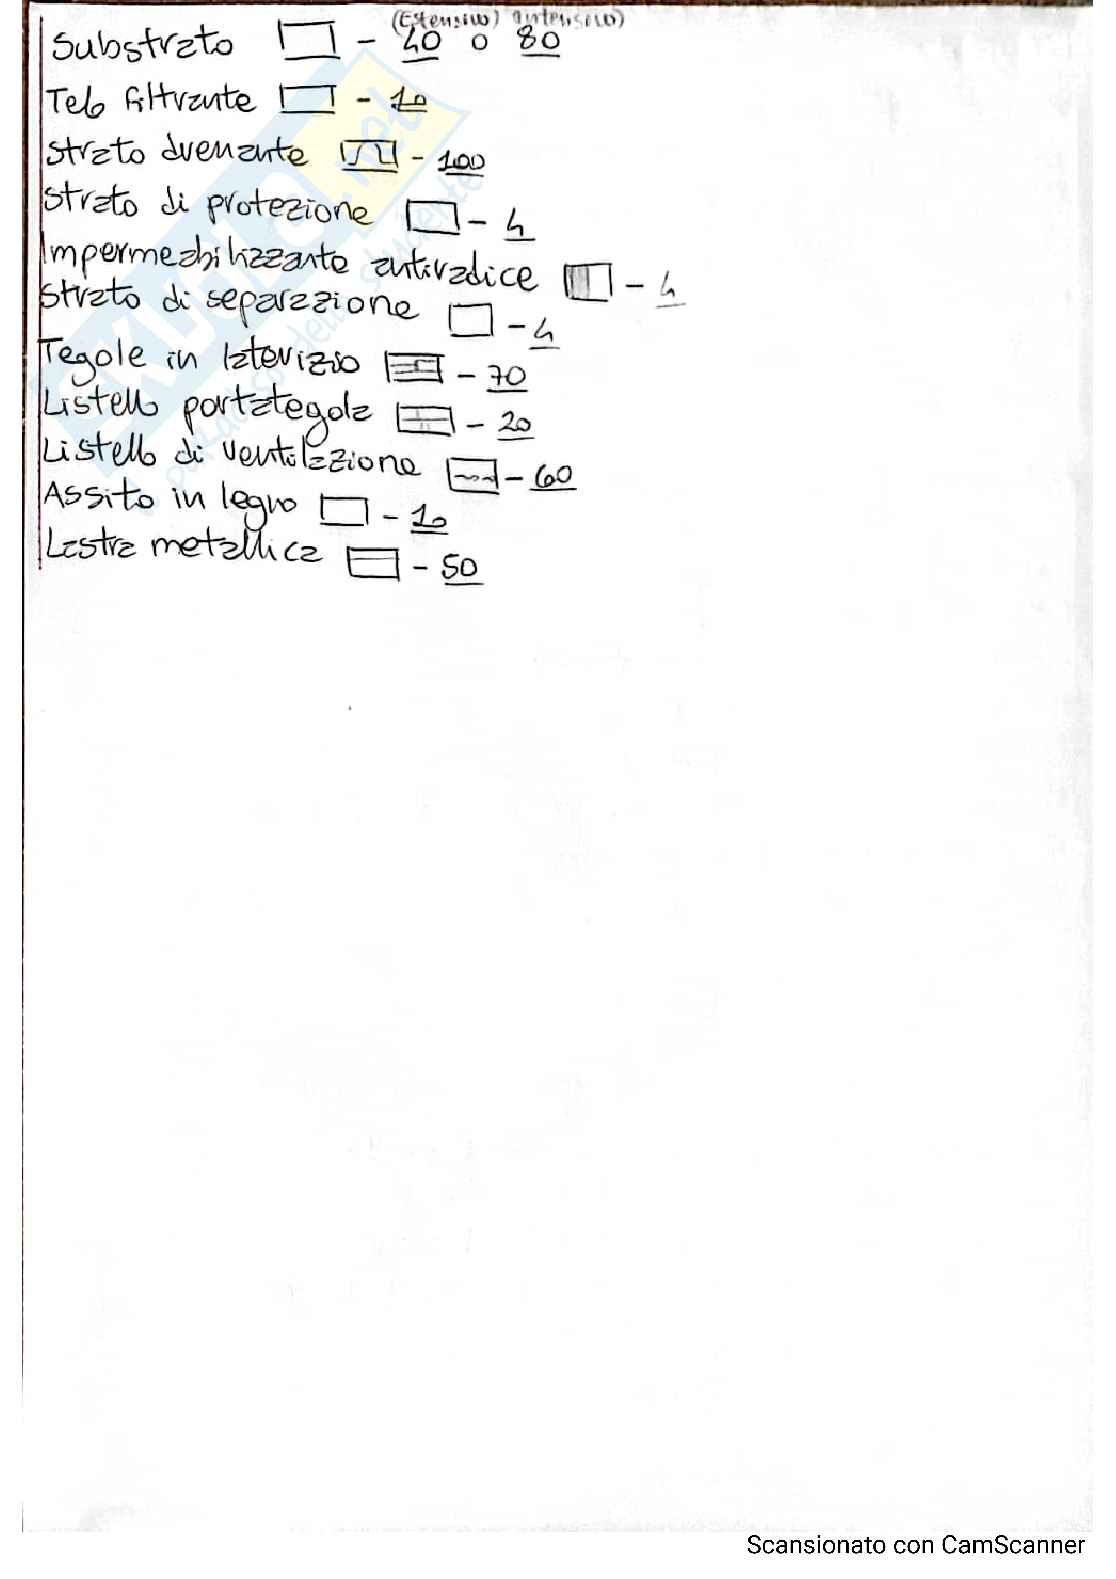 (Estensivo) (intensivo)
Substrato - 40 o 80
Telo filtrante - 10
Strato drenante - 100
Strato di protezione - 4
Impermeabilizzante antiradice - 4
Strato di separazione - 4
Tegole in laterizio - 70
Listello portategola - 20
Listello di ventilazione - 60
Assito in legno - 10
Lastra metallica - 50
SKUOLA.net
paradiso dello studente
Scansionato con CamScanner